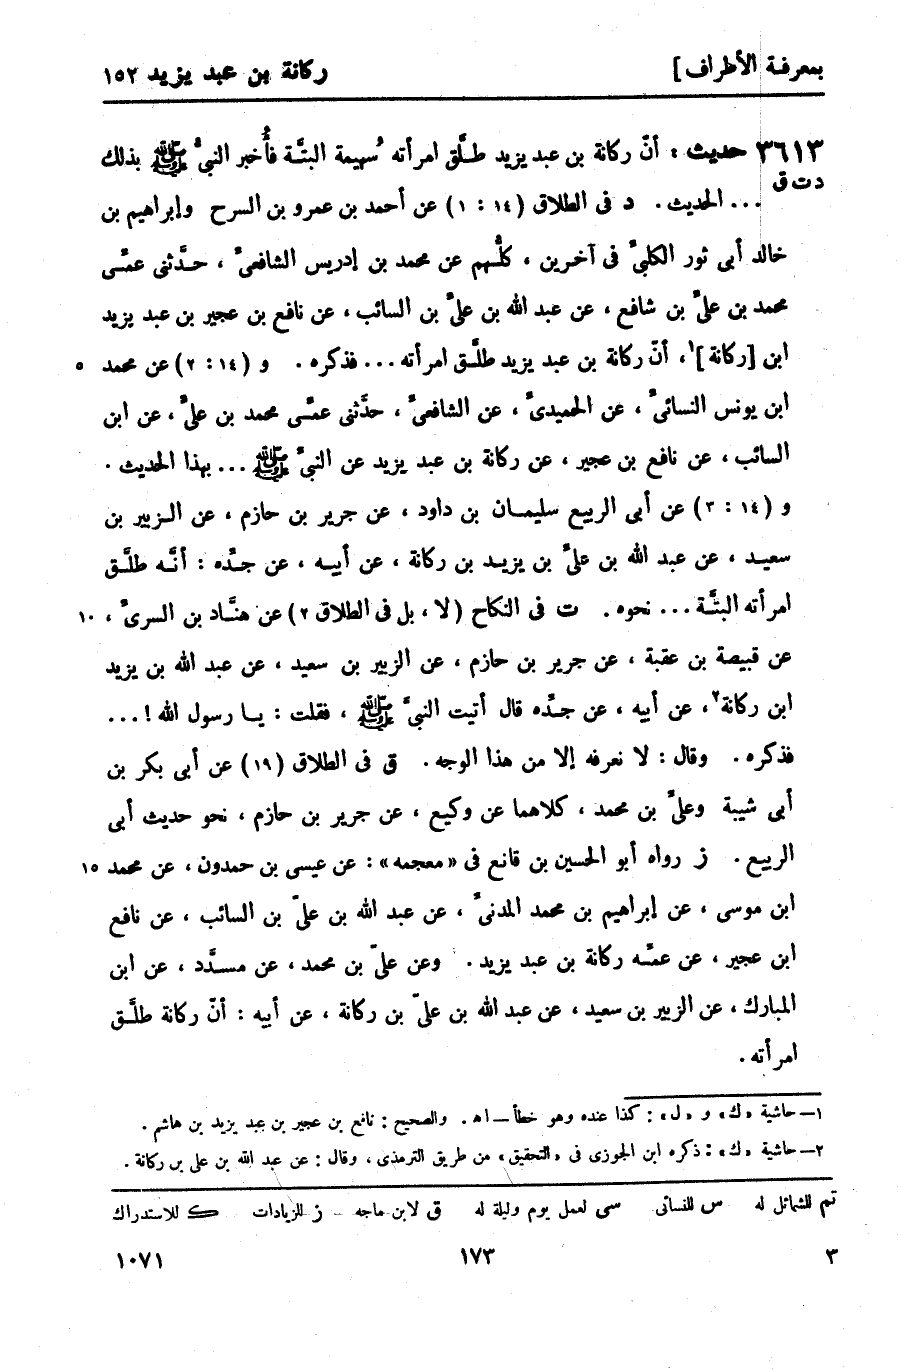 بمعرفة الأطراف] ركانة بن عبد يزيد ١٥٢
٣٦١٣ حديث : أنّ ركانة بن عبد يزيد طلَّق امرأته سُهيمة البتَّة فأُخبر النبيّ ﷺ بذلك
د ت ق
... الحديث . د فى الطلاق (١٤ : ١) عن أحمد بن عمرو بن السرح وإبراهيم بن
خالد أبى ثور الكلبىّ فى آخرين ، كلُّهم عن محمد بن إدريس الشافعىّ ، حدَّثنى عمّى
محمد بن علىّ بن شافع ، عن عبد الله بن علىّ بن السائب ، عن نافع بن عجير بن عبد يزيد
ابن [ركانة]١، أنّ ركانة بن عبد يزيد طلَّق امرأته ... فذكره . و (١٤ : ٢) عن محمد ٥
ابن يونس النسائىّ ، عن الحميدىّ ، عن الشافعىّ ، حدَّثنى عمّى محمد بن علىّ ، عن ابن
السائب ، عن نافع بن عجير ، عن ركانة بن عبد يزيد عن النبىّ ﷺ ... بهذا الحديث .
و (١٤ : ٣) عن أبى الربيع سليمان بن داود ، عن جرير بن حازم ، عن الزبير بن
سعيد ، عن عبد الله بن علىّ بن يزيد بن ركانة ، عن أبيه ، عن جدّه : أنَّه طلَّق
امرأته البتَّة ... نحوه . ت فى النكاح (لا ، بل فى الطلاق ٢) عن هنَّاد بن السرىّ ، ١٠
عن قبيصة بن عقبة ، عن جرير بن حازم ، عن الزبير بن سعيد ، عن عبد الله بن يزيد
ابن ركانة٢، عن أبيه ، عن جدّه قال أتيت النبىّ ﷺ ، فقلت : يا رسول الله ! ...
فذكره . وقال : لا نعرفه إلا من هذا الوجه . ق فى الطلاق (١٩) عن أبى بكر بن
أبى شيبة وعلىّ بن محمد ، كلاهما عن وكيع ، عن جرير بن حازم ، نحو حديث أبى
الربيع . ز رواه أبو الحسين بن قانع فى «معجمه» : عن عيسى بن حمدون ، عن محمد ١٥
ابن موسى ، عن إبراهيم بن محمد المدنىّ ، عن عبد الله بن علىّ بن السائب ، عن نافع
ابن عجير ، عن عمّه ركانة بن عبد يزيد . وعن علىّ بن محمد ، عن مسدَّد ، عن ابن
المبارك ، عن الزبير بن سعيد ، عن عبد الله بن علىّ بن ركانة ، عن أبيه : أنّ ركانة طلَّق
امرأته .
١– حاشية «ك» و «ل» : كذا عنده وهو خطأ – اه . والصحيح : نافع بن عجير بن عبد يزيد بن هاشم .
٢– حاشية «ك» : ذكره ابن الجوزى فى «التحقيق» من طريق الترمذى ، وقال : عن عبد الله بن على بن ركانة .
تم للشمائل له س للنسائى سى لعمل يوم وليلة له ق لابن ماجه ز للزيادات ك للاستدراك
٣ ١٧٣ ١٠٧١